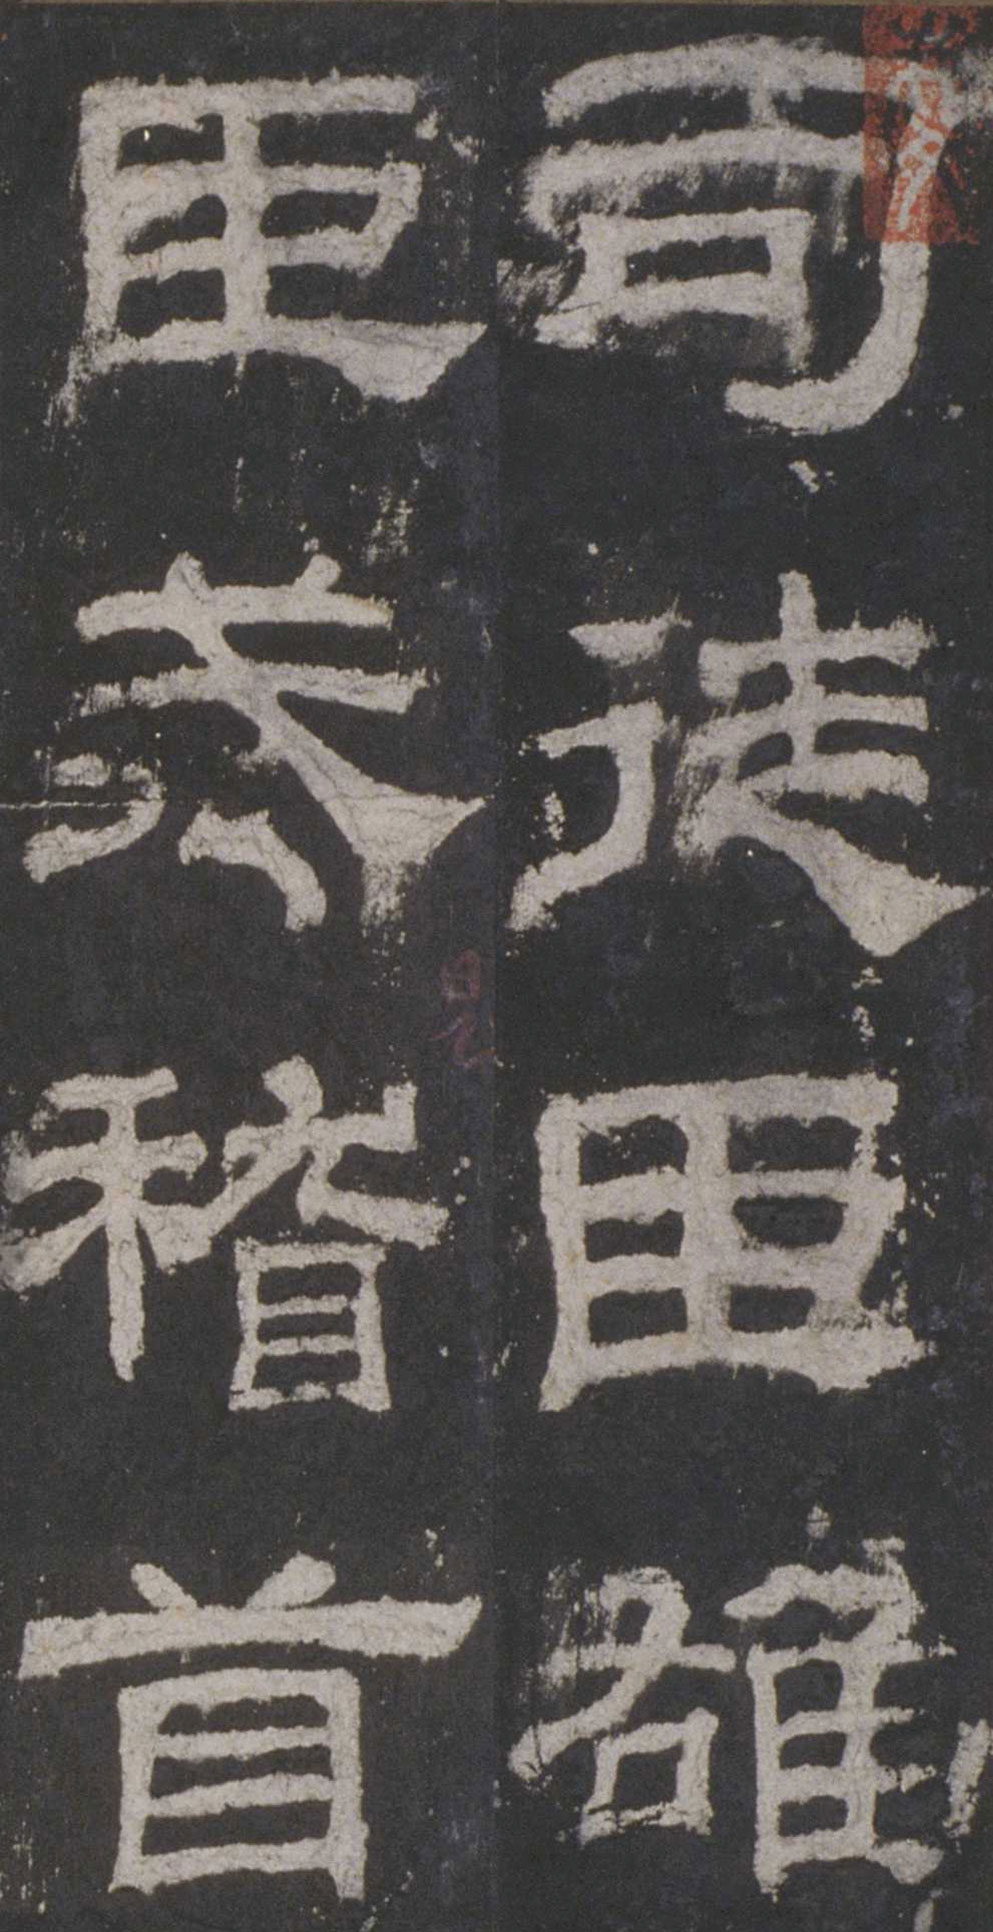 司徒臣雄
臣戒稽首